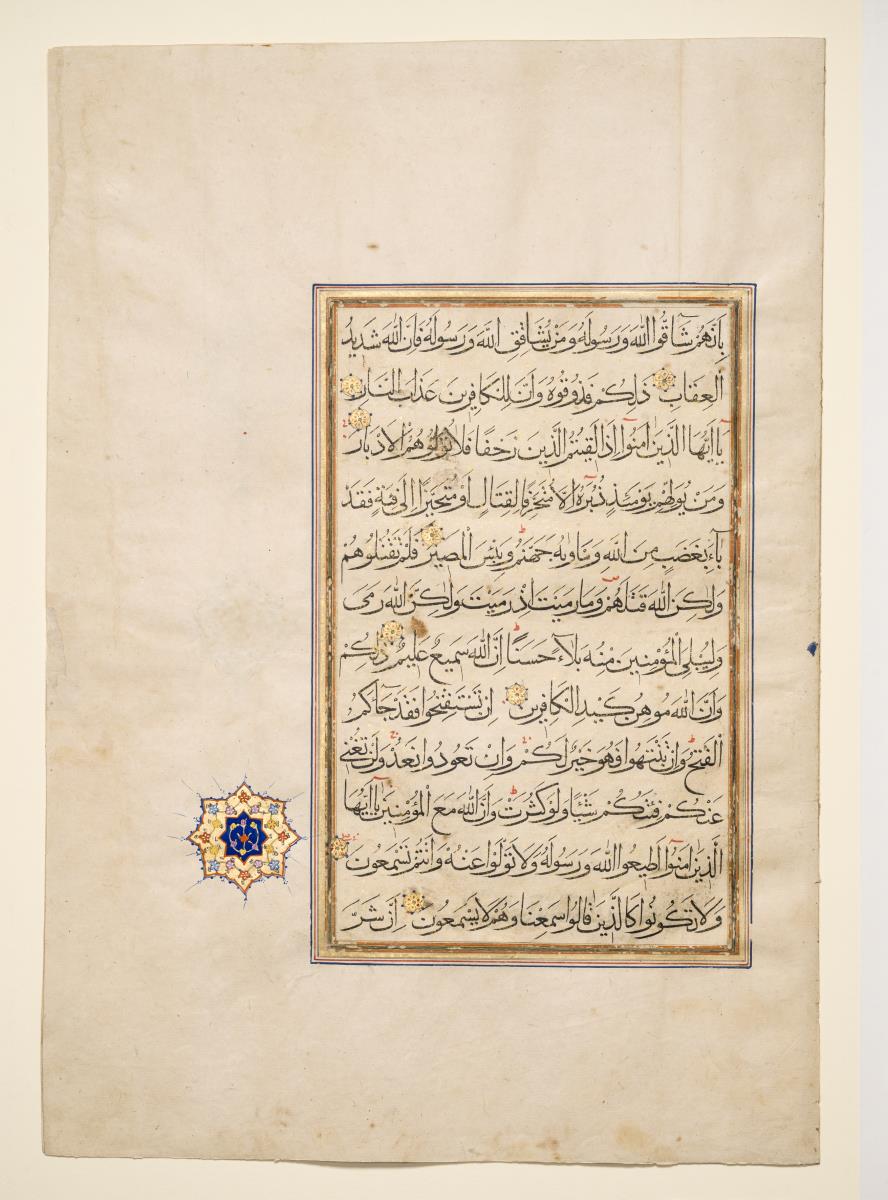 بِأَنَّهُمْ شَآقُّوا اللَّهَ وَرَسُولَهُ وَمَنْ يُشَاقِقِ اللَّهَ وَرَسُولَهُ فَإِنَّ اللَّهَ شَدِيدُ
الْعِقَابِ ذَلِكُمْ فَذُوقُوهُ وَأَنَّ لِلْكَافِرِينَ عَذَابَ النَّارِ
يَآ أَيُّهَا الَّذِينَ اٰمَنُوآ إِذَا لَقِيتُمُ الَّذِينَ كَفَرُوا زَحْفًا فَلَا تُوَلُّوهُمُ الْأَدْبَارَ
وَمَنْ يُوَلِّهِمْ يَوْمَئِذٍ دُبُرَهُ إِلَّا مُتَحَرِّفًا لِقِتَالٍ أَوْ مُتَحَيِّزًا إِلَى فِئَةٍ فَقَدْ
بَآءَ بِغَضَبٍ مِنَ اللَّهِ وَمَأْوٰيهُ جَهَنَّمُ وَبِئْسَ الْمَصِيرُ فَلَمْ تَقْتُلُوهُمْ
وَلٰكِنَّ اللَّهَ قَتَلَهُمْ وَمَا رَمَيْتَ إِذْ رَمَيْتَ وَلٰكِنَّ اللَّهَ رَمَى
وَلِيُبْلِيَ الْمُؤْمِنِينَ مِنْهُ بَلَآءً حَسَنًا إِنَّ اللَّهَ سَمِيعٌ عَلِيمٌ ذٰلِكُمْ
وَأَنَّ اللَّهَ مُوهِنُ كَيْدِ الْكَافِرِينَ إِنْ تَسْتَفْتِحُوا فَقَدْ جَآءَكُمُ
الْفَتْحُ وَإِنْ تَنْتَهُوا فَهُوَ خَيْرٌ لَكُمْ وَإِنْ تَعُودُوا نَعُدْ وَلَنْ تُغْنِيَ
عَنْكُمْ فِئَتُكُمْ شَيْئًا وَلَوْ كَثُرَتْ وَأَنَّ اللَّهَ مَعَ الْمُؤْمِنِينَ يَآ أَيُّهَا
الَّذِينَ اٰمَنُوآ أَطِيعُوا اللَّهَ وَرَسُولَهُ وَلَا تَوَلَّوْا عَنْهُ وَأَنْتُمْ تَسْمَعُونَ
وَلَا تَكُونُوا كَالَّذِينَ قَالُوا سَمِعْنَا وَهُمْ لَا يَسْمَعُونَ إِنَّ شَرَّ